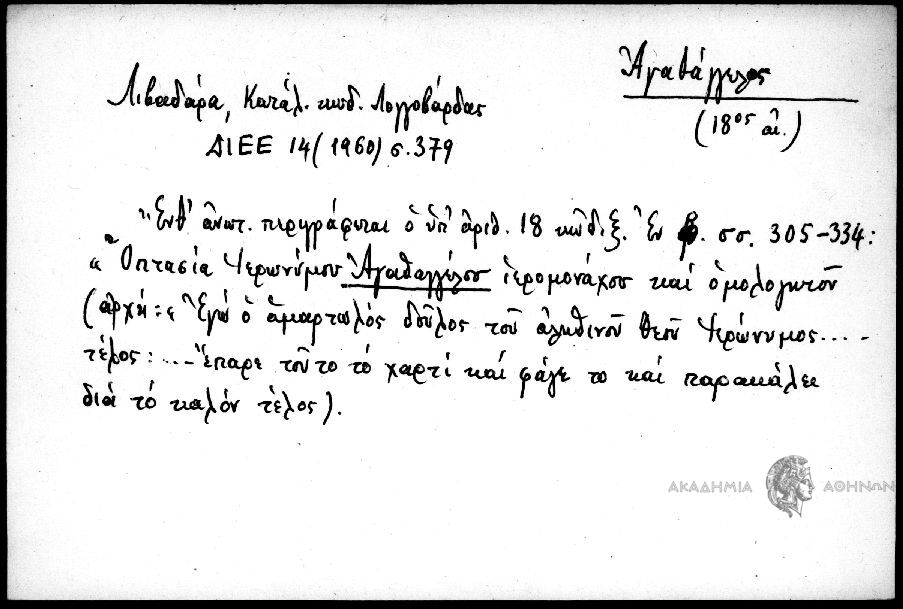 Ἀγαθάγγελος
(18ος αἰ.)
Λιβαδάρα, Κατάλ. κωδ. Λογγοβάρδας
ΔΙΕΕ 14 (1960) σ. 379
Ἔνθ' ἀνωτ. περιγράφεται ὁ ὑπ' ἀριθ. 18 κῶδιξ. Ἐν σσ. 305-334:
« Ὀπτασία Ἱερωνύμου Ἀγαθαγγέλου ἱερομονάχου καί ὁμολογητοῦ
(ἀρχή: « Ἐγώ ὁ ἁμαρτωλός δοῦλος τοῦ ἀληθινοῦ θεοῦ Ἱερώνυμος.....
τέλος: .... Ἔπαρε τοῦτο τό χαρτί καί φάγε το καί παρακάλει
διά τό καλόν τέλος).
ΑΚΑΔΗΜΙΑ ΑΘΗΝΩΝ